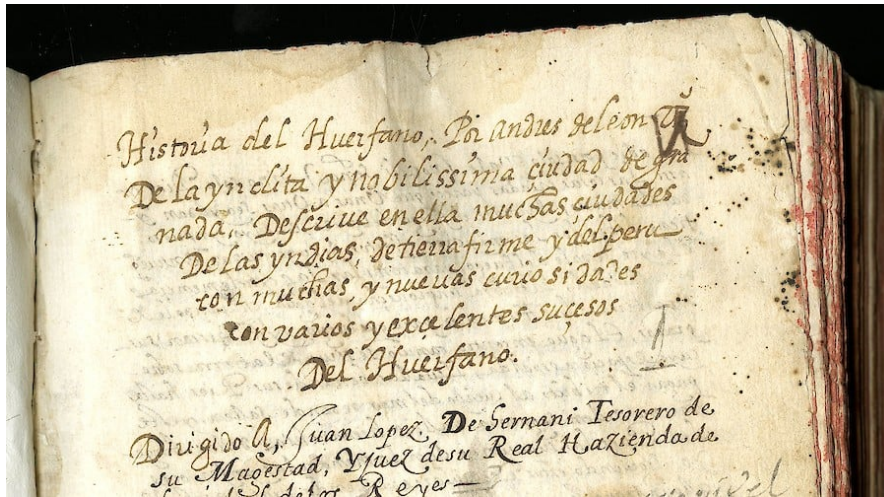 Historia del Huerfano, Por Andres de leon
De la ynclita y nobilissima ciudad de gra
nada. Descrive en ella muchas ciudades
De las yndias, de tierra firme y del peru
con muchas, y nuevas curiosidades
con varios y excelentes suçesos
Del Huerfano.
Dirigido A, Juan Lopez De Hernani Tesorero de
su Magestad, Y Juez de su Real Hazienda de
de los Reyes